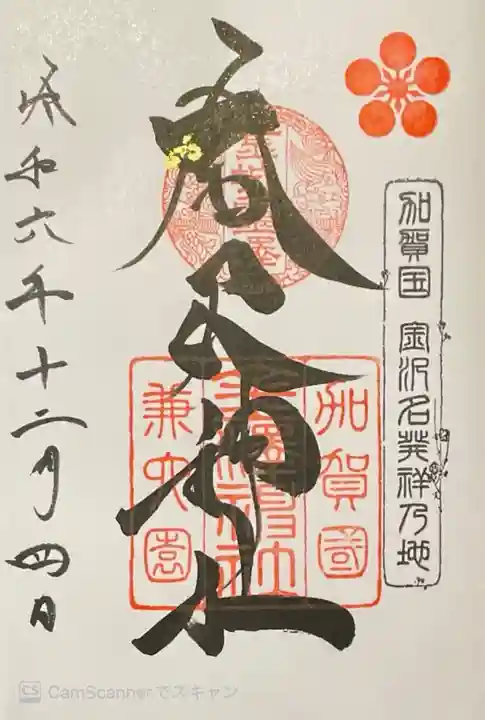 加賀国 金沢名発祥乃地
加賀國
金澤神社
兼六園
令和六年十二月四日
CS CamScannerでスキャン